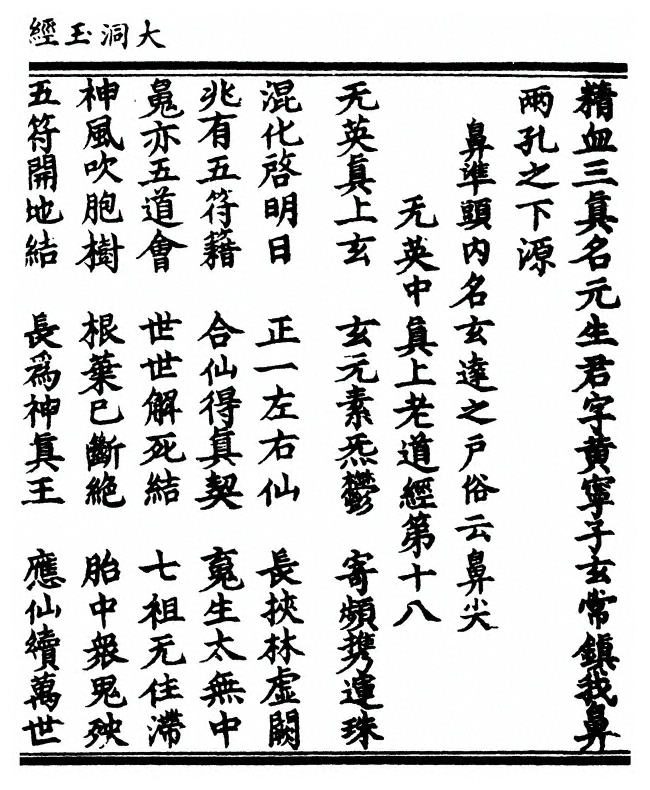 大洞玉經
精血三真名元生君字黄寧子玄常鎮我鼻
兩孔之下源
鼻準頭内名玄達之戶俗云鼻尖
无英中真上老道經第十八
无英真上玄 玄元素炁鬱 寄頻携運珠
混化啓明日 正一左右仙 長挾林虛闕
兆有五符籍 合仙得真契 𩲸生太無中
𩲸亦五道會 世世解死結 七祖无住滯
神風吹胞樹 根葉已斷絶 胎中衆鬼殃
五符開地結 長爲神真王 應仙續萬世